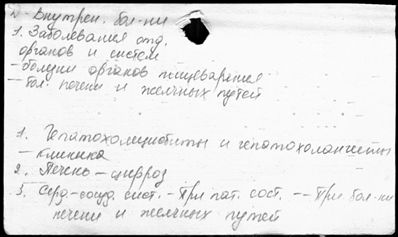 2- Внутрен. бол-ни
1. Заболевания отд.
органов и систем
- болезни органов пищеварения
- бол. печени и желчных путей
1. Гепатохолециститы и гепатохолангиты
- клиника
2. Печень - цирроз
3. Серд-сосуд. сист. - При пат. сост. -- При бол-ни
печени и желчных путей